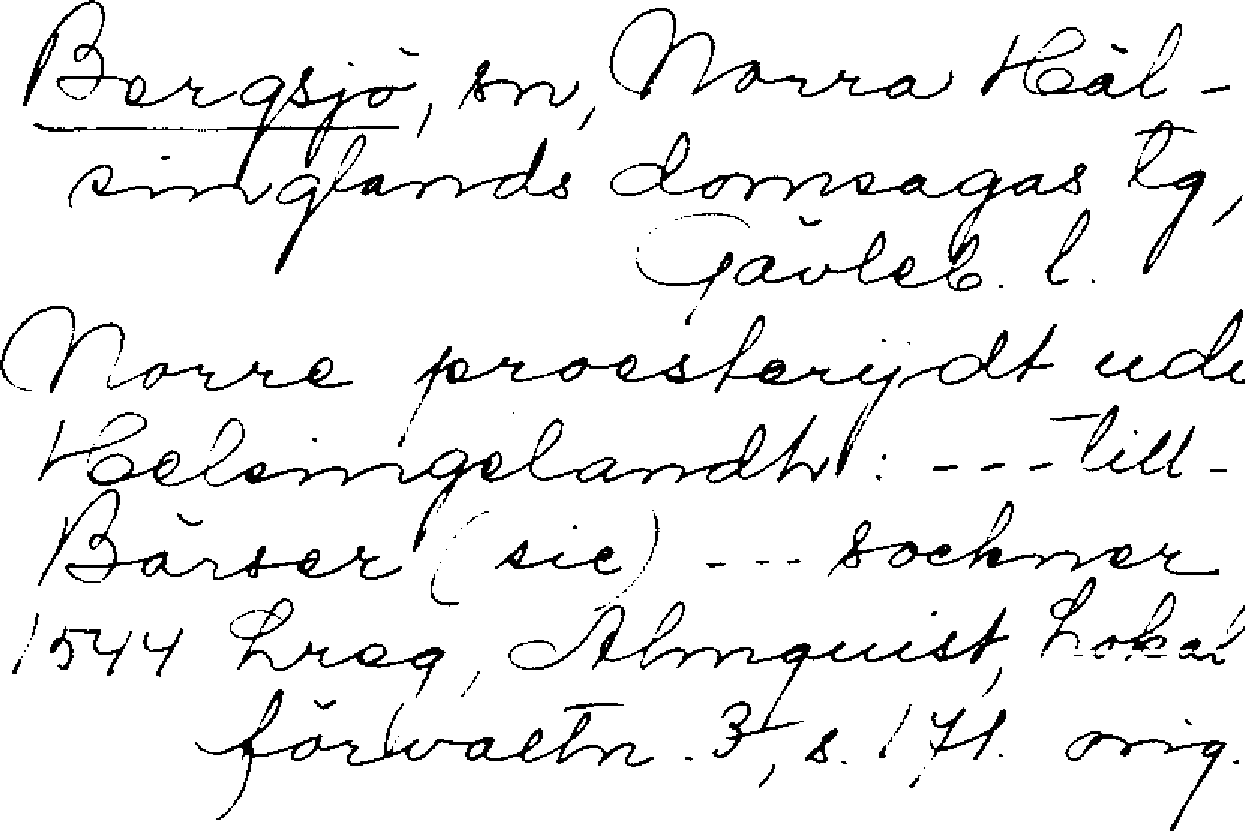 Bergsjö, sn, Norra Häl-
singlands domsagas tg,
Gävleb. l.
Norre proesterijdt udi
Helsingelandh: --- till-
Bärser (sic) --- sockner
1544 Lreg, Almquist, Lokal
förvaltn. 3, s. 171. orig.